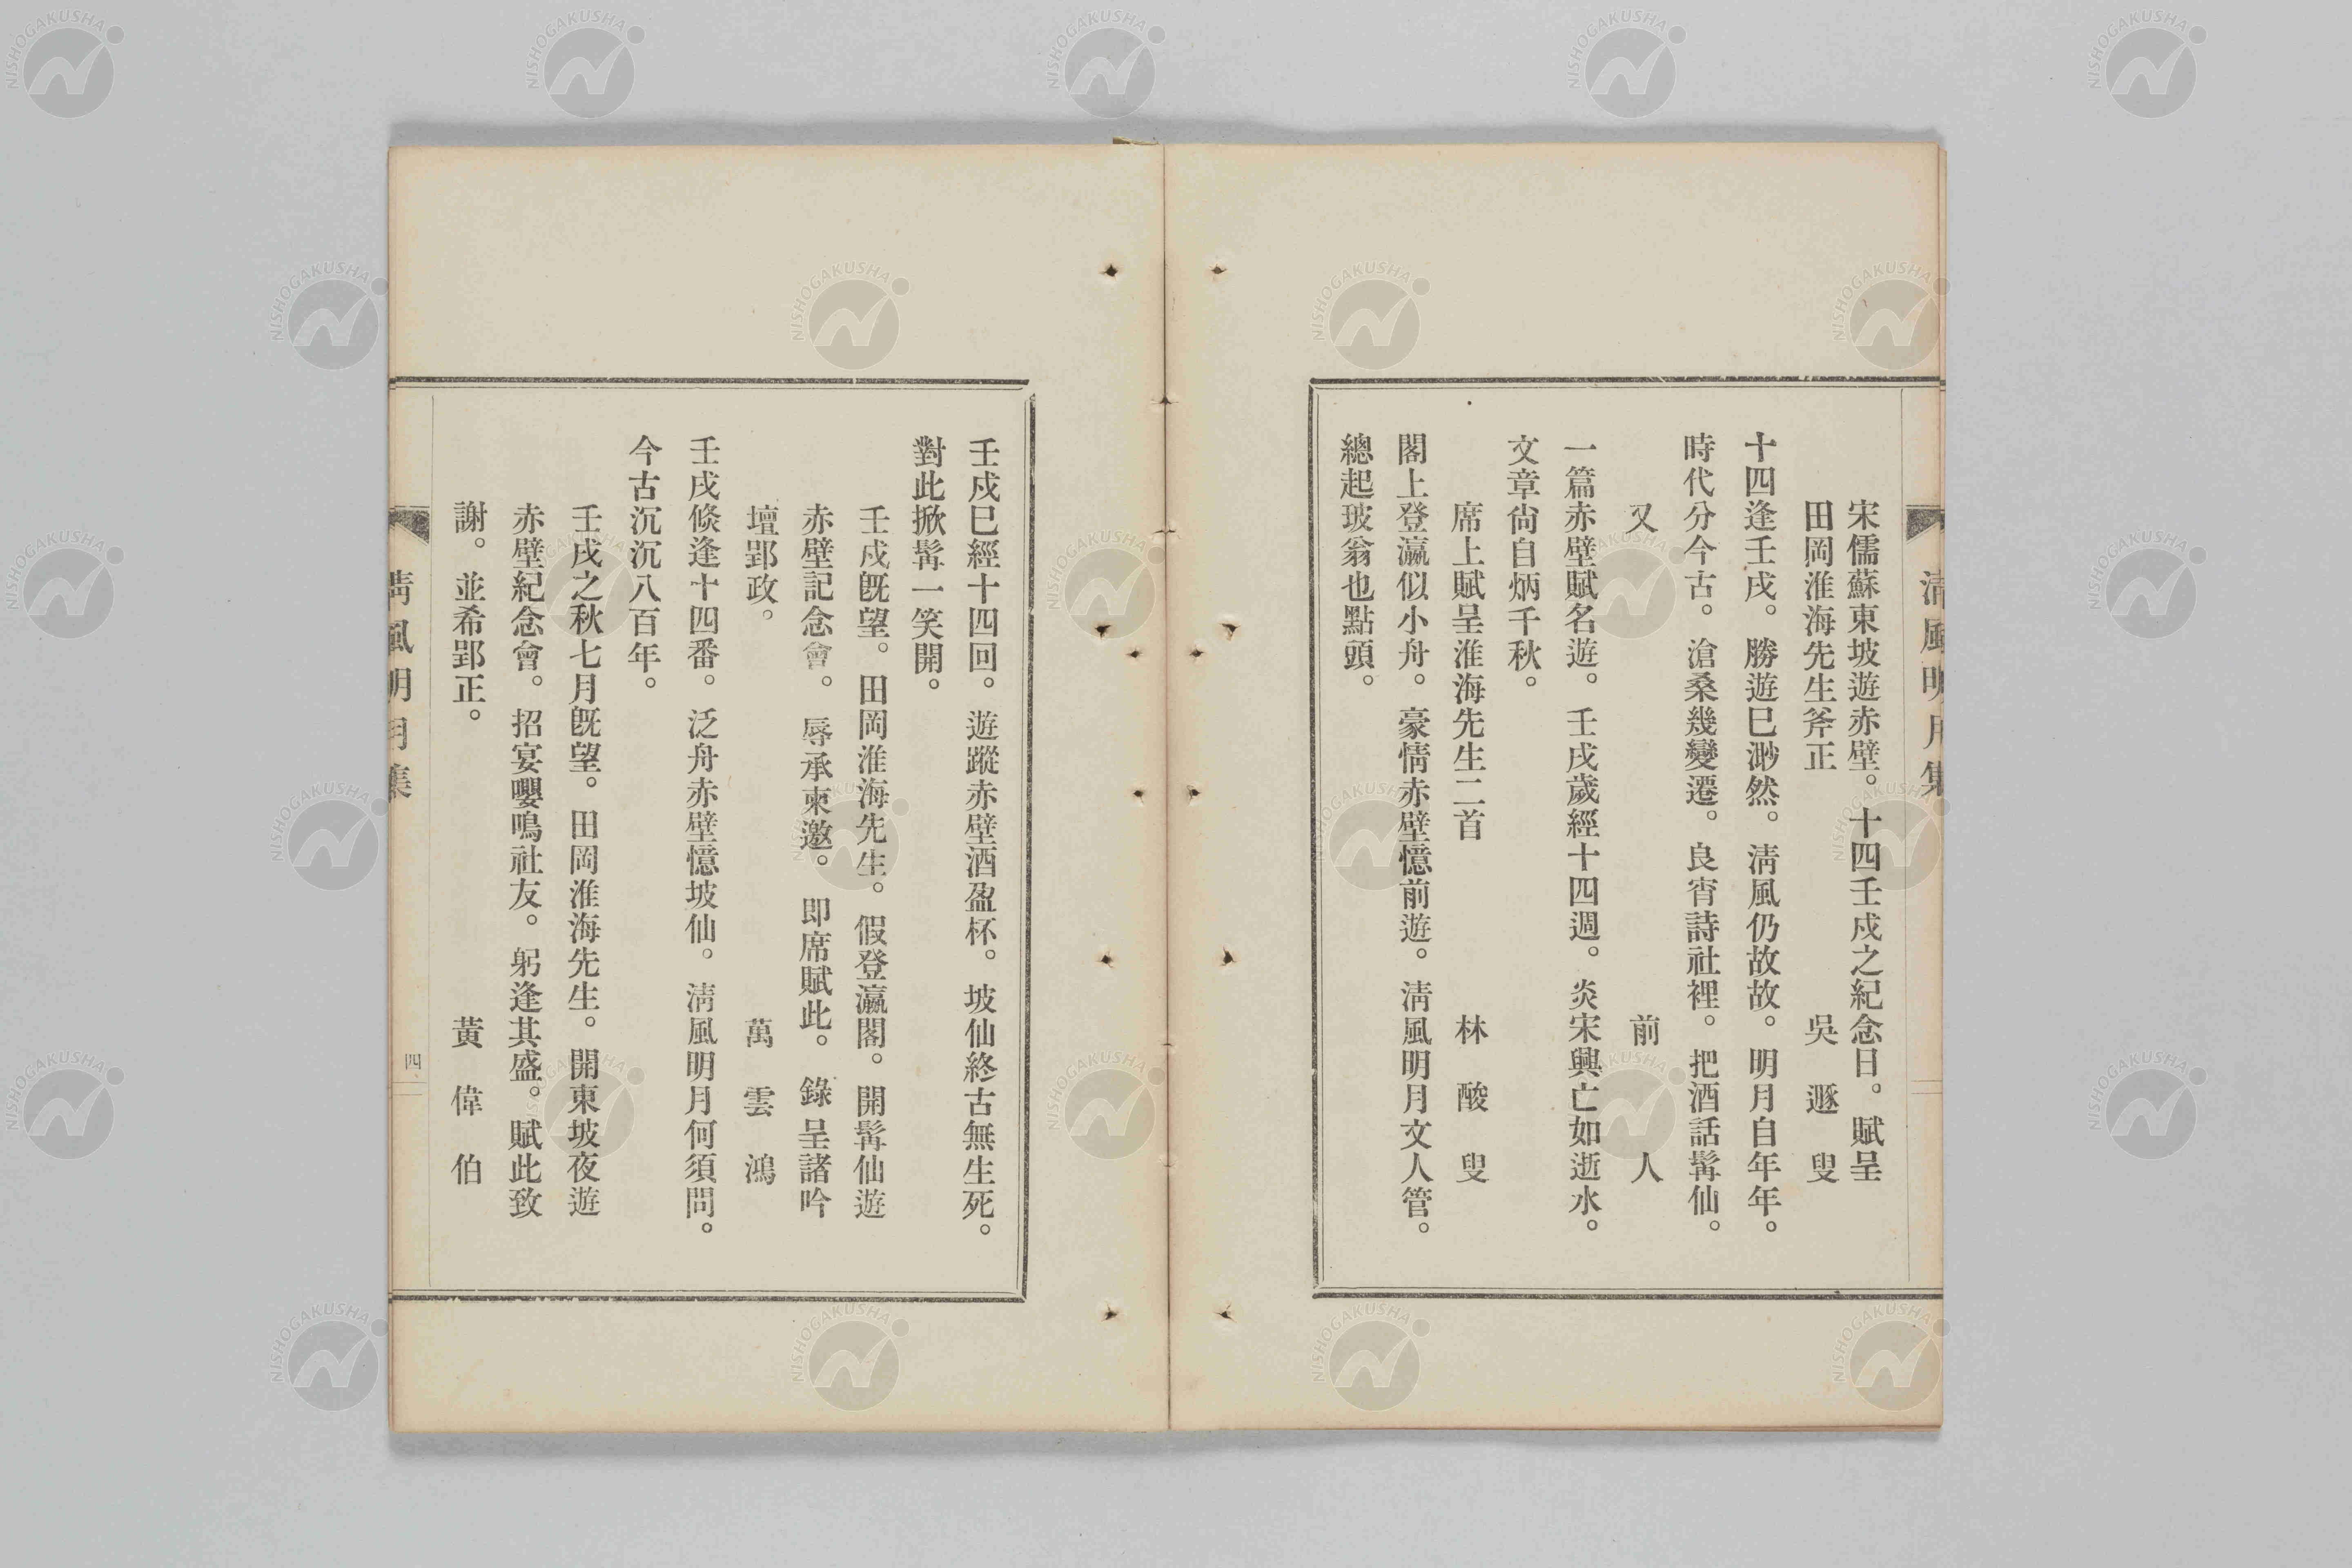 清風明月集
宋儒蘇東坡遊赤壁。十四壬戌之紀念日。賦呈
田岡淮海先生斧正　吳遯叟
十四逢壬戌。勝遊巳渺然。淸風仍故故。明月自年年。
時代分今古。滄桑幾變遷。良宵詩社裡。把酒話髯仙。
又　前人
一篇赤壁賦名遊。壬戌歲經十四週。炎宋興亡如逝水。
文章尙自炳千秋。
席上賦呈淮海先生二首　林酸叟
閣上登瀛似小舟。豪情赤壁憶前遊。淸風明月文人管。
總起玻翁也點頭。
壬戌巳經十四回。遊蹤赤壁酒盈杯。坡仙終古無生死。
對此掀髯一笑開。
壬戌旣望。田岡淮海先生。假登瀛閣。開髯仙遊
赤壁記念會。辱承柬邀。即席賦此。錄呈諸吟
壇郢政。　萬雲鴻
壬戌倏逢十四番。泛舟赤壁憶坡仙。淸風明月何須問。
今古沉沉八百年。
壬戌之秋七月旣望。田岡淮海先生。開東坡夜遊
赤壁紀念會。招宴嚶鳴社友。躬逢其盛。賦此致
謝。並希郢正。　黃偉伯
淸風明月集
四
NISHOGAKUSHA